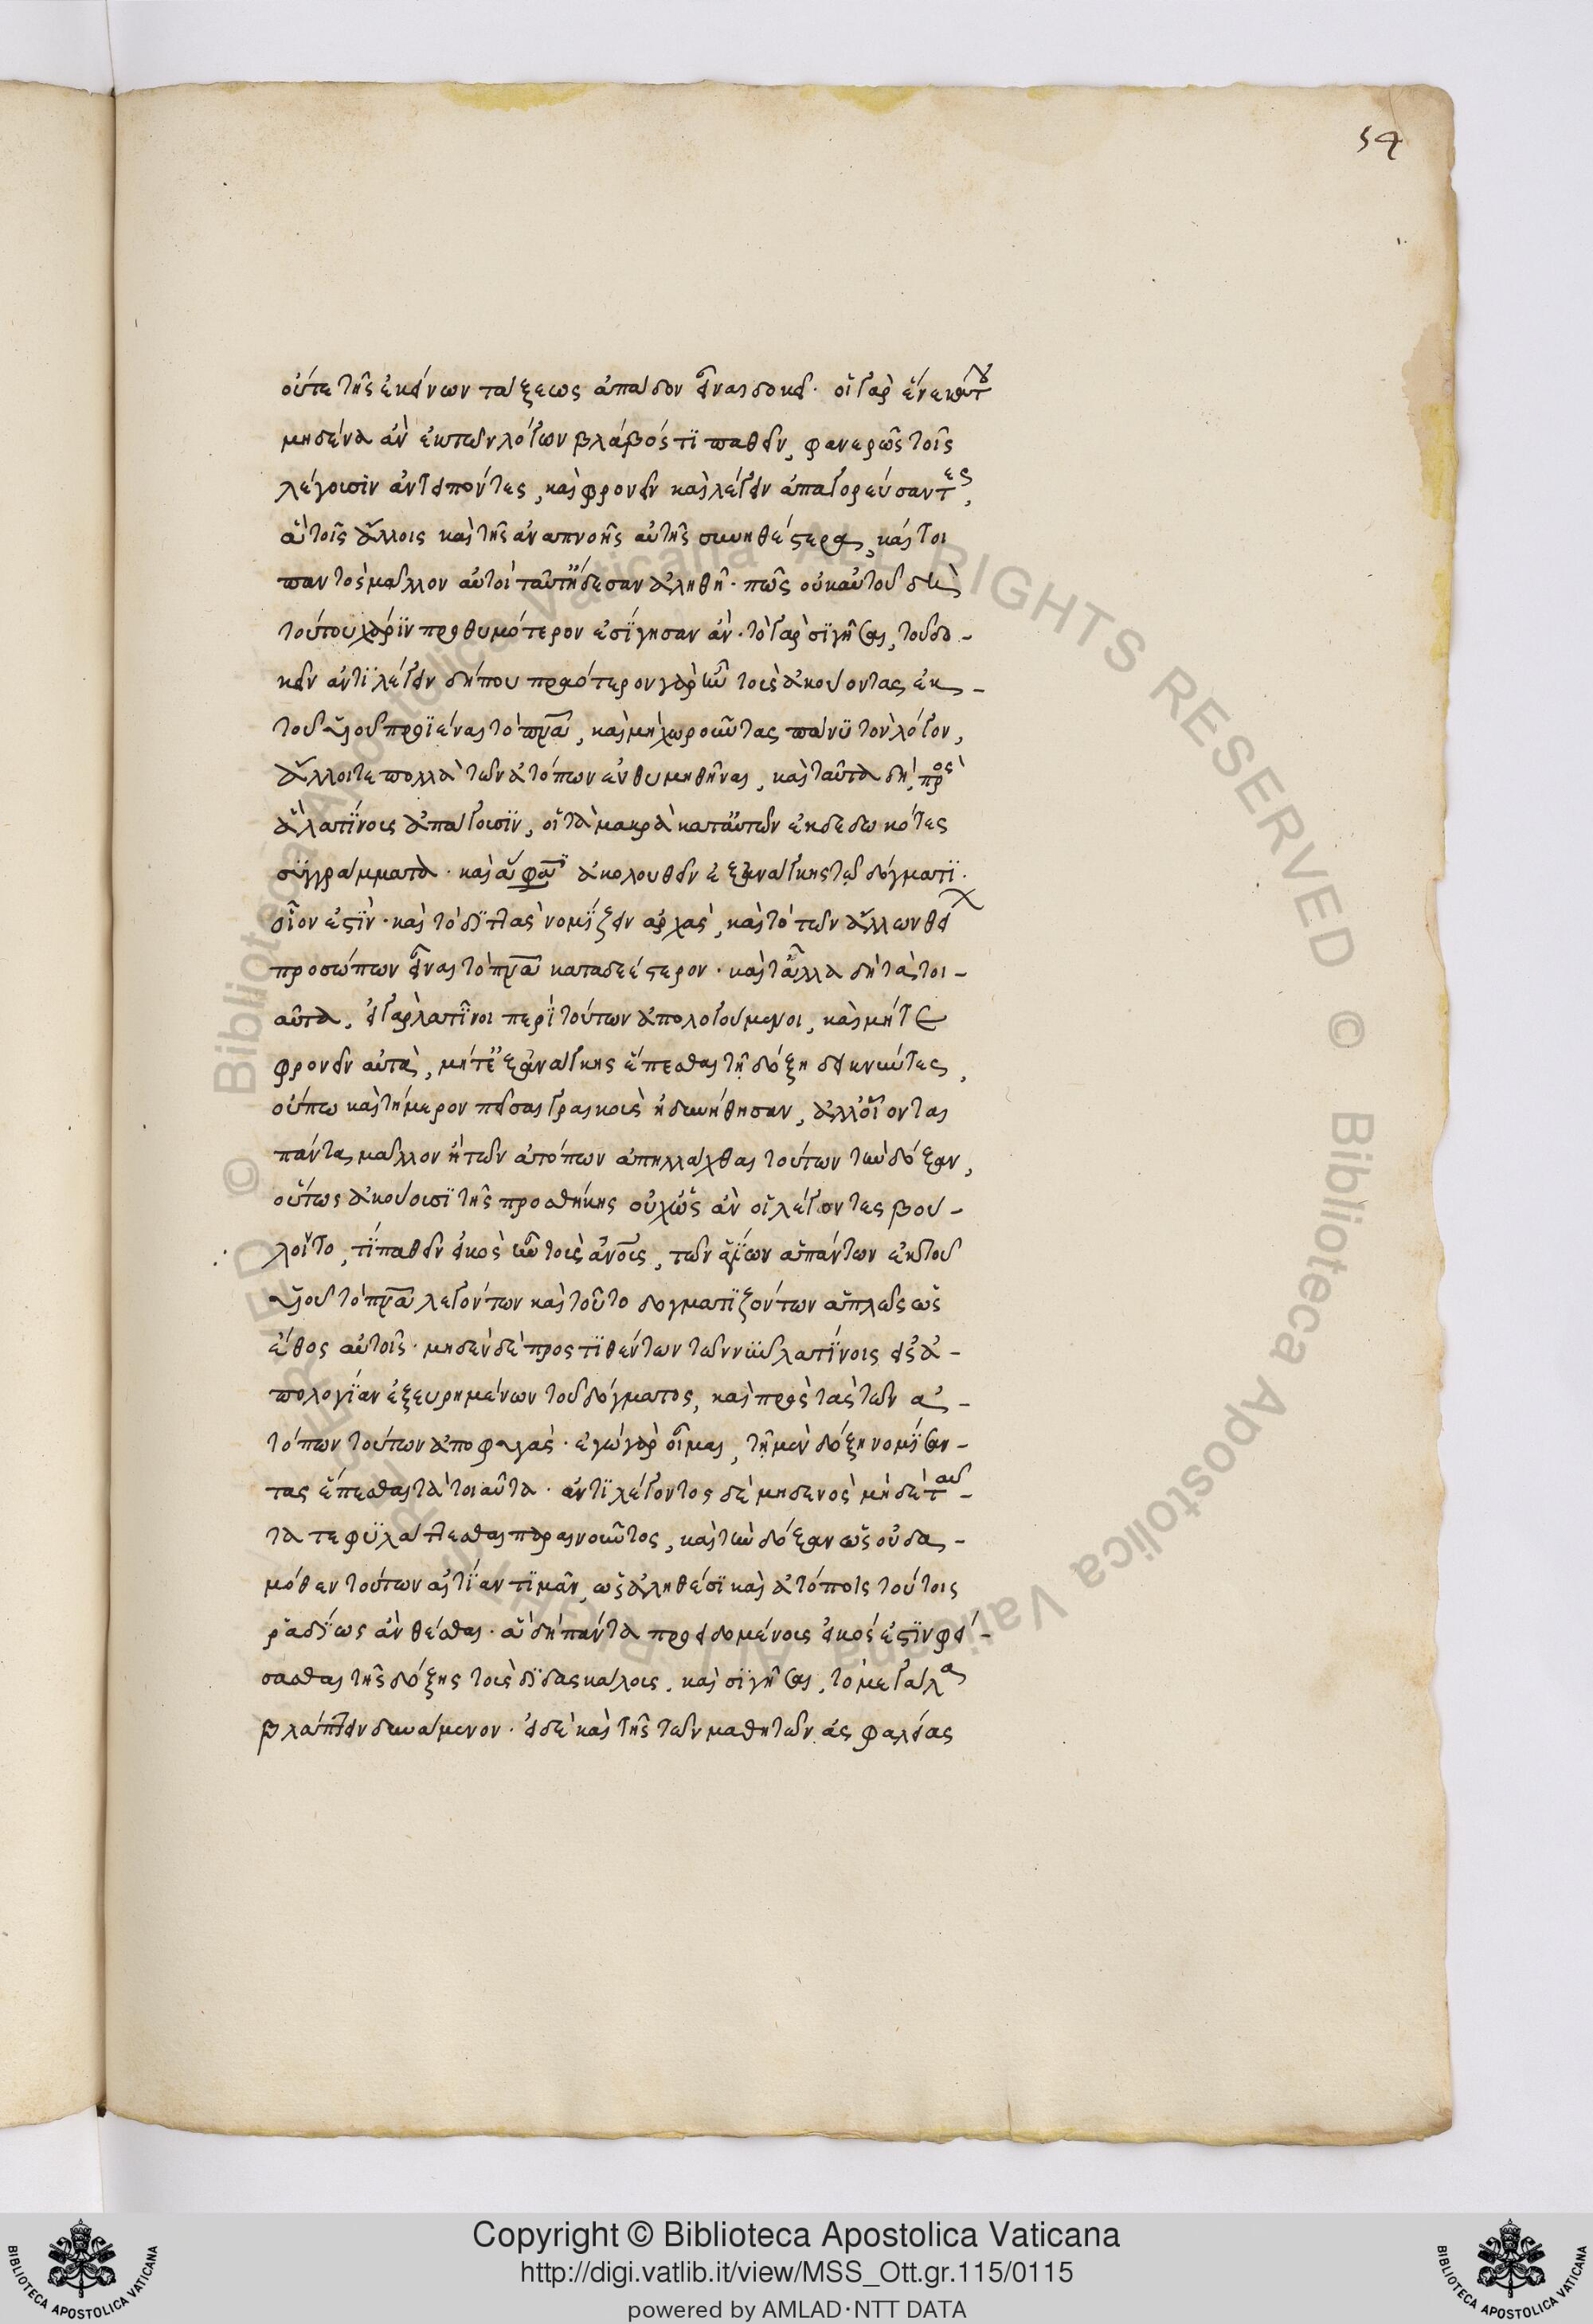 54
οὔτε τῆς ἐκείνων τάξεως ἀπᾶδον εἶναι δοκεῖ. οἳ γὰρ ἕνεκα τοῦ
μηδένα ἂν ἐκ τῶν λόγων βλάβος τι παθεῖν, φανερῶς τοῖς
λέγουσιν ἀντειπόντες, καὶ φρονεῖν καὶ λέγειν ἀπαγορεύσαντες,
ἃ τοῖς ἄλλοις καὶ τῆς ἀναπνοῆς αὐτῆς συνηθέστερα, καί τοι
παντὸς μᾶλλον αὐτοὶ ταῦτ' ᾔδεσαν ἀληθῆ. πῶς οὐκ αὐτοῦ δὴ
τούτου χάριν προθυμότερον ἐσίγησαν ἄν. τὸ γὰρ σιγῆσαι, τοῦ δο-
κεῖν ἀντιλέγειν δήπου πραότερον γὰρ ἦν τοὺς ἀκούοντας ἐκ
τοῦ υἱοῦ προϊέναι τὸ πνα, καὶ μὴ χωροῦντας πάνυ τὸν λόγον,
ἄλλοι τε πολλὰ τῶν ἀτόπων ἐνθυμηθῆναι, καὶ ταῦτα δὴ πρὸς
ἃ λατίνοις ἀπάγουσιν, οἳ τὰ μακρὰ κατ' αὐτῶν ἐκδεδωκότες
συγγράμματα. καὶ ἅ φασι ἀκολουθεῖν ἐξ ἀνάγκης τῷ δόγματι.
οἷόν ἐστιν. καὶ τὸ διττὰς νομίζειν ἀρχάς, καὶ τὸ τῶν ἄλλων θείων
προσώπων εἶναι τὸ πνα καταδεέστερον. καὶ τἆλλα δὴ τὰ τοι-
αῦτα. εἰ γὰρ λατῖνοι περὶ τούτων ἀπολογούμενοι, καὶ μήτε
φρονεῖν αὐτά, μήτε ἐξ ἀνάγκης ἕπεσθαι τῇ δόξῃ δεικνύντες,
οὔπω καὶ τήμερον πεῖσαι γραικοὺς ἠδυνήθησαν, ἀλλ' οἴονται
πάντα μᾶλλον ἢ τῶν ἀτόπων ἀπηλλάχθαι τούτων τὴν δόξαν,
οὕτως ἀκούουσι τῆς προσθήκης οὐχ ὡς ἂν οἱ λέγοντες βού-
λοιντο, τί παθεῖν εἰκὸς ἦν τοὺς ἀνους, τῶν ἁγίων ἁπάντων ἐκ τοῦ
υἱοῦ τὸ πνα λεγόντων καὶ τοῦτο δογματιζόντων ἁπλῶς ὡς
ἔθος αὐτοῖς. μηδὲν δὲ προστιθέντων τῶν νῦν λατίνοις εἰς ἀ-
πολογίαν ἐξευρημένων τοῦ δόγματος, καὶ πρὸς τὰς τῶν ἀ-
τόπων τούτων ἀποφυγάς. ἐγὼ γὰρ οἶμαι, τῇ μὲν δόξῃ νομίσαν-
τας ἕπεσθαι τὰ τοιαῦτα. ἀντιλέγοντος δὲ μηδενὸς μηδὲ ταῦ-
τα τε φυλάττεσθαι παραινοῦντος, καὶ τὴν δόξαν ὡς οὐδα-
μόθεν τούτων αἰτίαν τιμᾶν, ὡς ἀληθέσι καὶ ἀτόποις τούτοις
ῥᾳδίως ἂν θέσθαι. ἃ δὴ πάντα προειδομένοις εἰκός ἐστιν φεί-
σασθαι τῆς δόξης τοὺς διδασκάλους, καὶ σιγῆσαι, τὸ μεγάλα
βλάπτειν δυνάμενον. εἰ δὲ καὶ τῆς τῶν μαθητῶν ἀσφαλείας
Copyright © Biblioteca Apostolica Vaticana
http://digi.vatlib.it/view/MSS_Ott.gr.115/0115
powered by AMLAD·NTT DATA